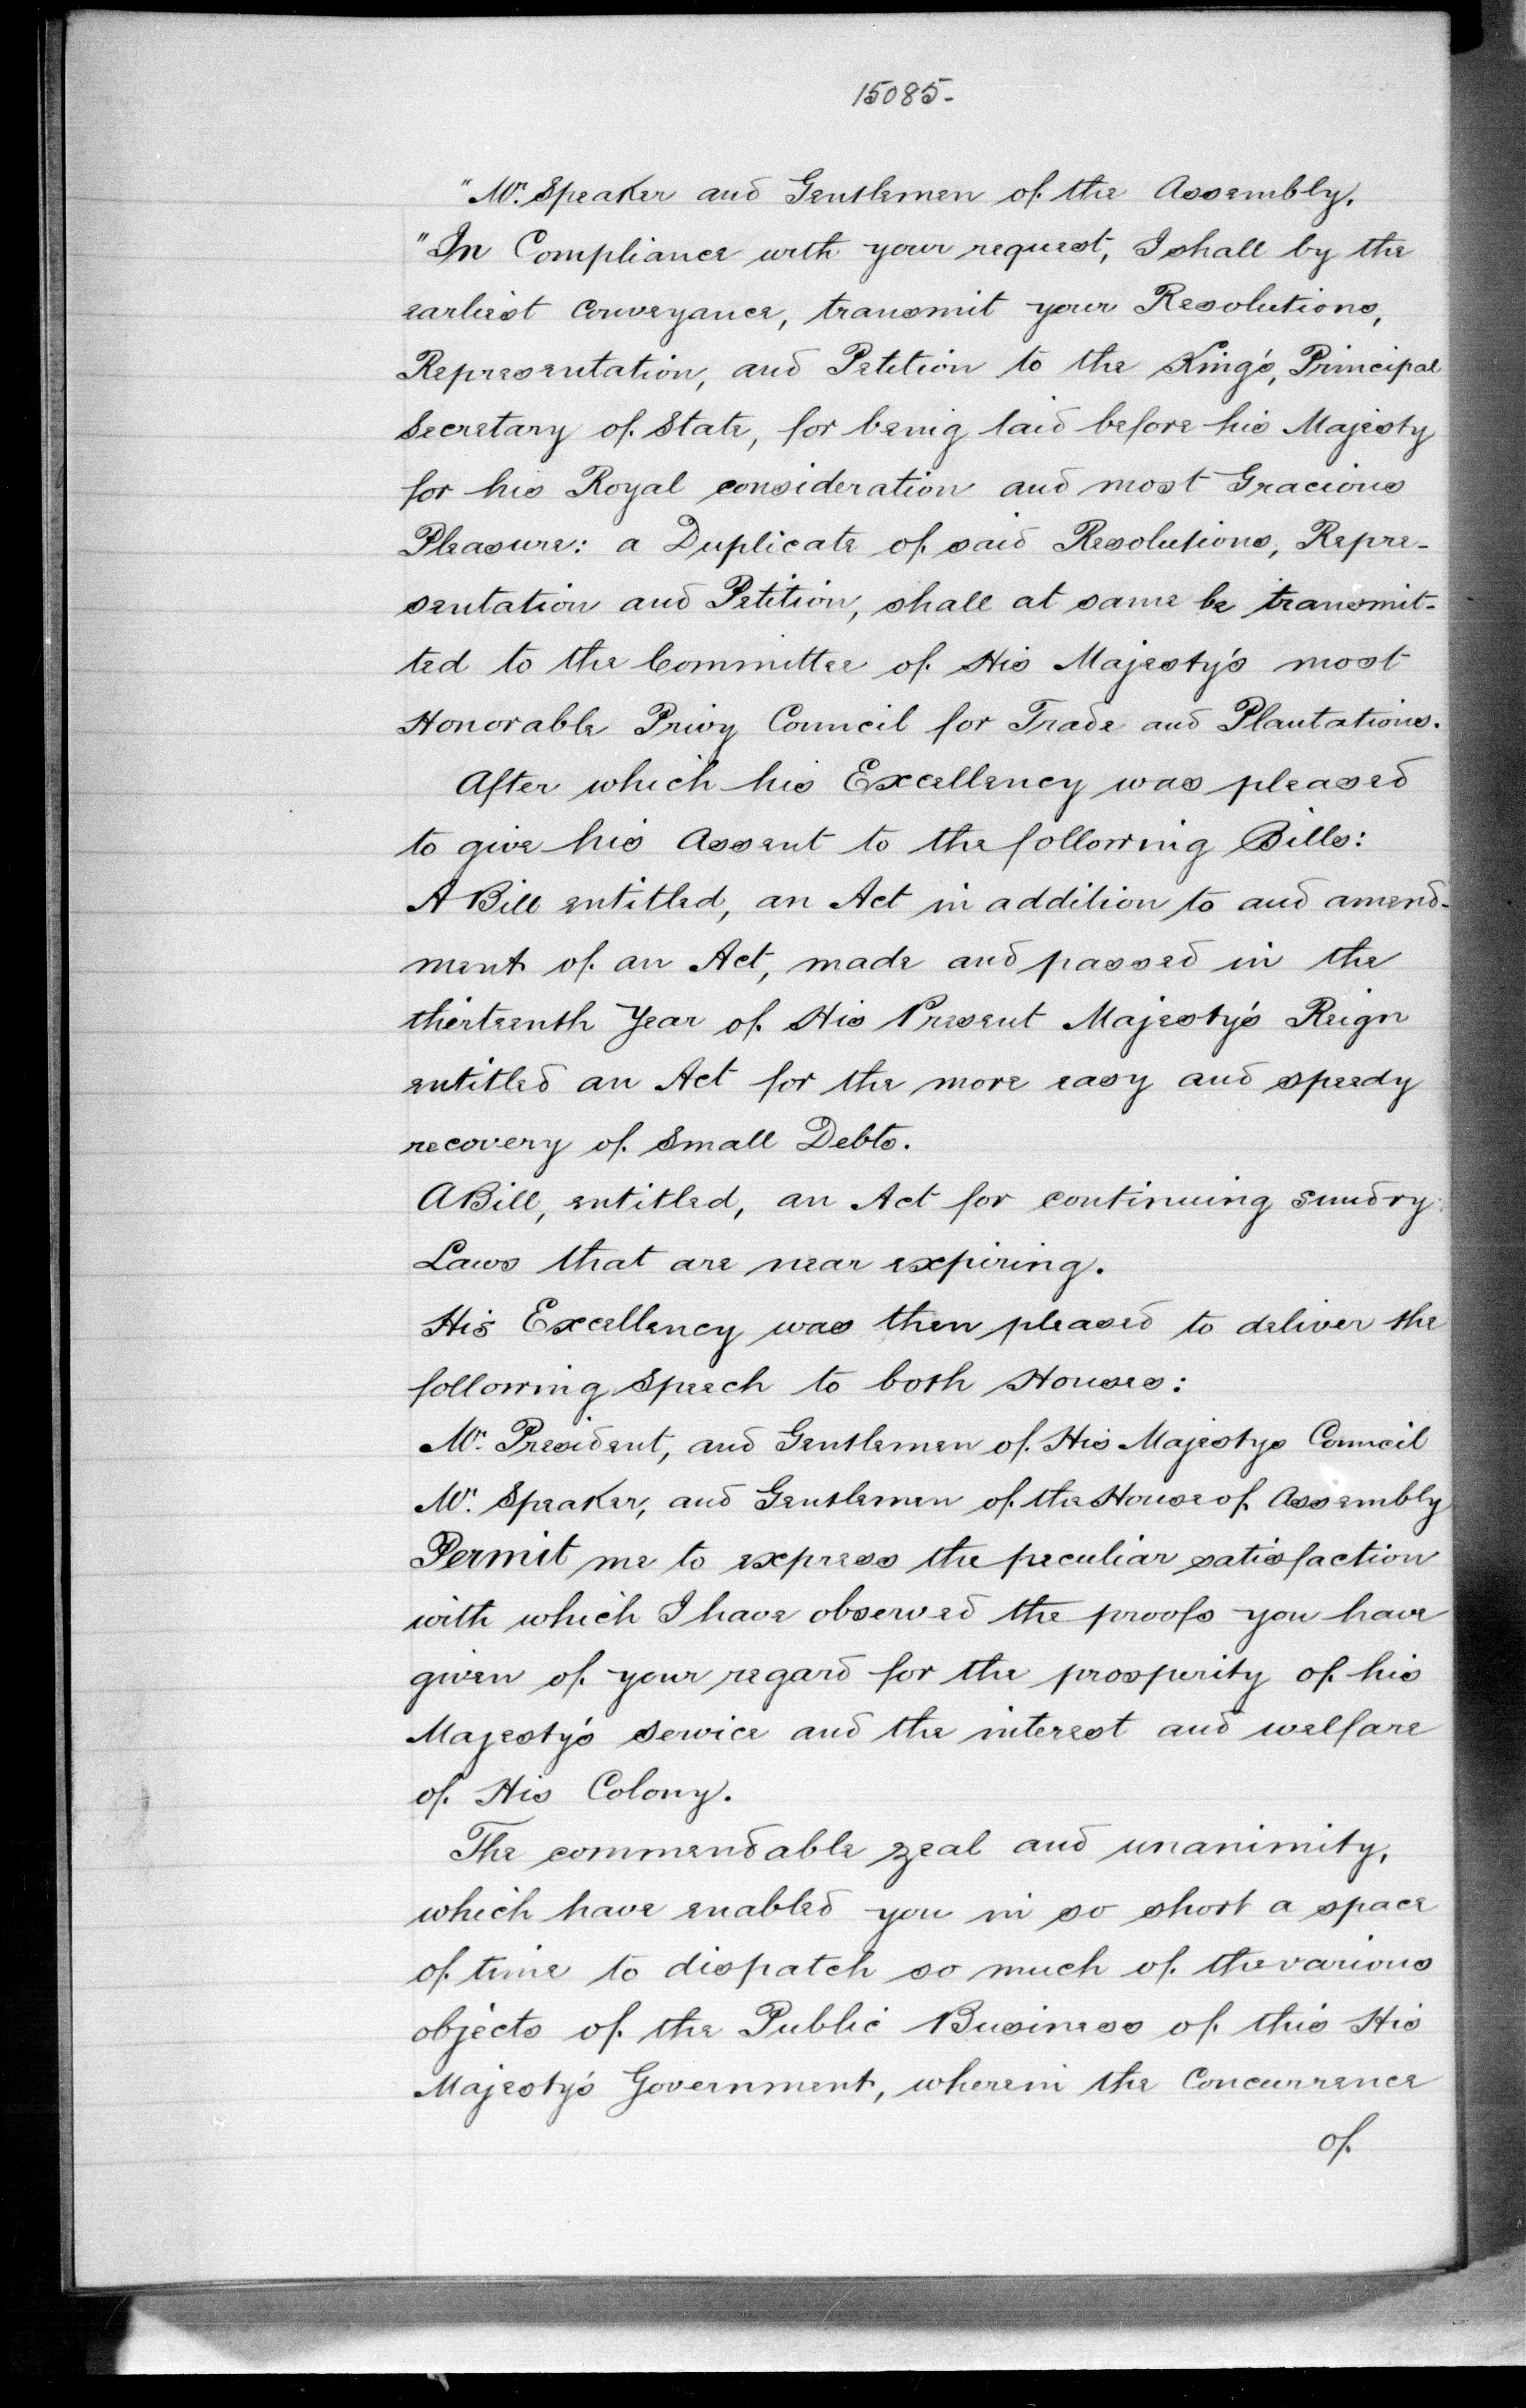 15085-
"Mr. Speaker and Gentlemen of the Assembly.
"In Compliance with your request, I shall by the
earliest Conveyance, transmit your Resolutions,
Representation, and Petition to the King's, Principal
Secretary of State, for being laid before his Majesty
for his Royal consideration and most Gracious
Pleasure: a Duplicate of said Resolutions, Repre-
sentation and Petition, shall at same be transmit-
ted to the Committee of His Majesty's most
Honorable Privy Council for Trade and Plantations.
After which his Excellency was pleased
to give his Assent to the following Bills:
A Bill entitled, an Act in addition to and amend-
ment of an Act, made and passed in the
thirteenth Year of His Present Majesty's Reign
entitled an Act for the more easy and speedy
recovery of Small Debts.
A Bill, entitled, an Act for continuing sundry
Laws that are near expiring.
His Excellency was then pleased to deliver the
following Speech to both Houses:
Mr. President, and Gentlemen of His Majestys Council
Mr. Speaker, and Gentlemen of the House of Assembly
Permit me to express the peculiar satisfaction
with which I have observed the proofs you have
given of your regard for the prosperity of his
Majesty's Service and the interest and welfare
of His Colony.
The commendable zeal and unanimity,
which have enabled you in so short a space
of time to dispatch so much of the various
objects of the Public Business of this His
Majesty's Government, wherein the Concurrence
of